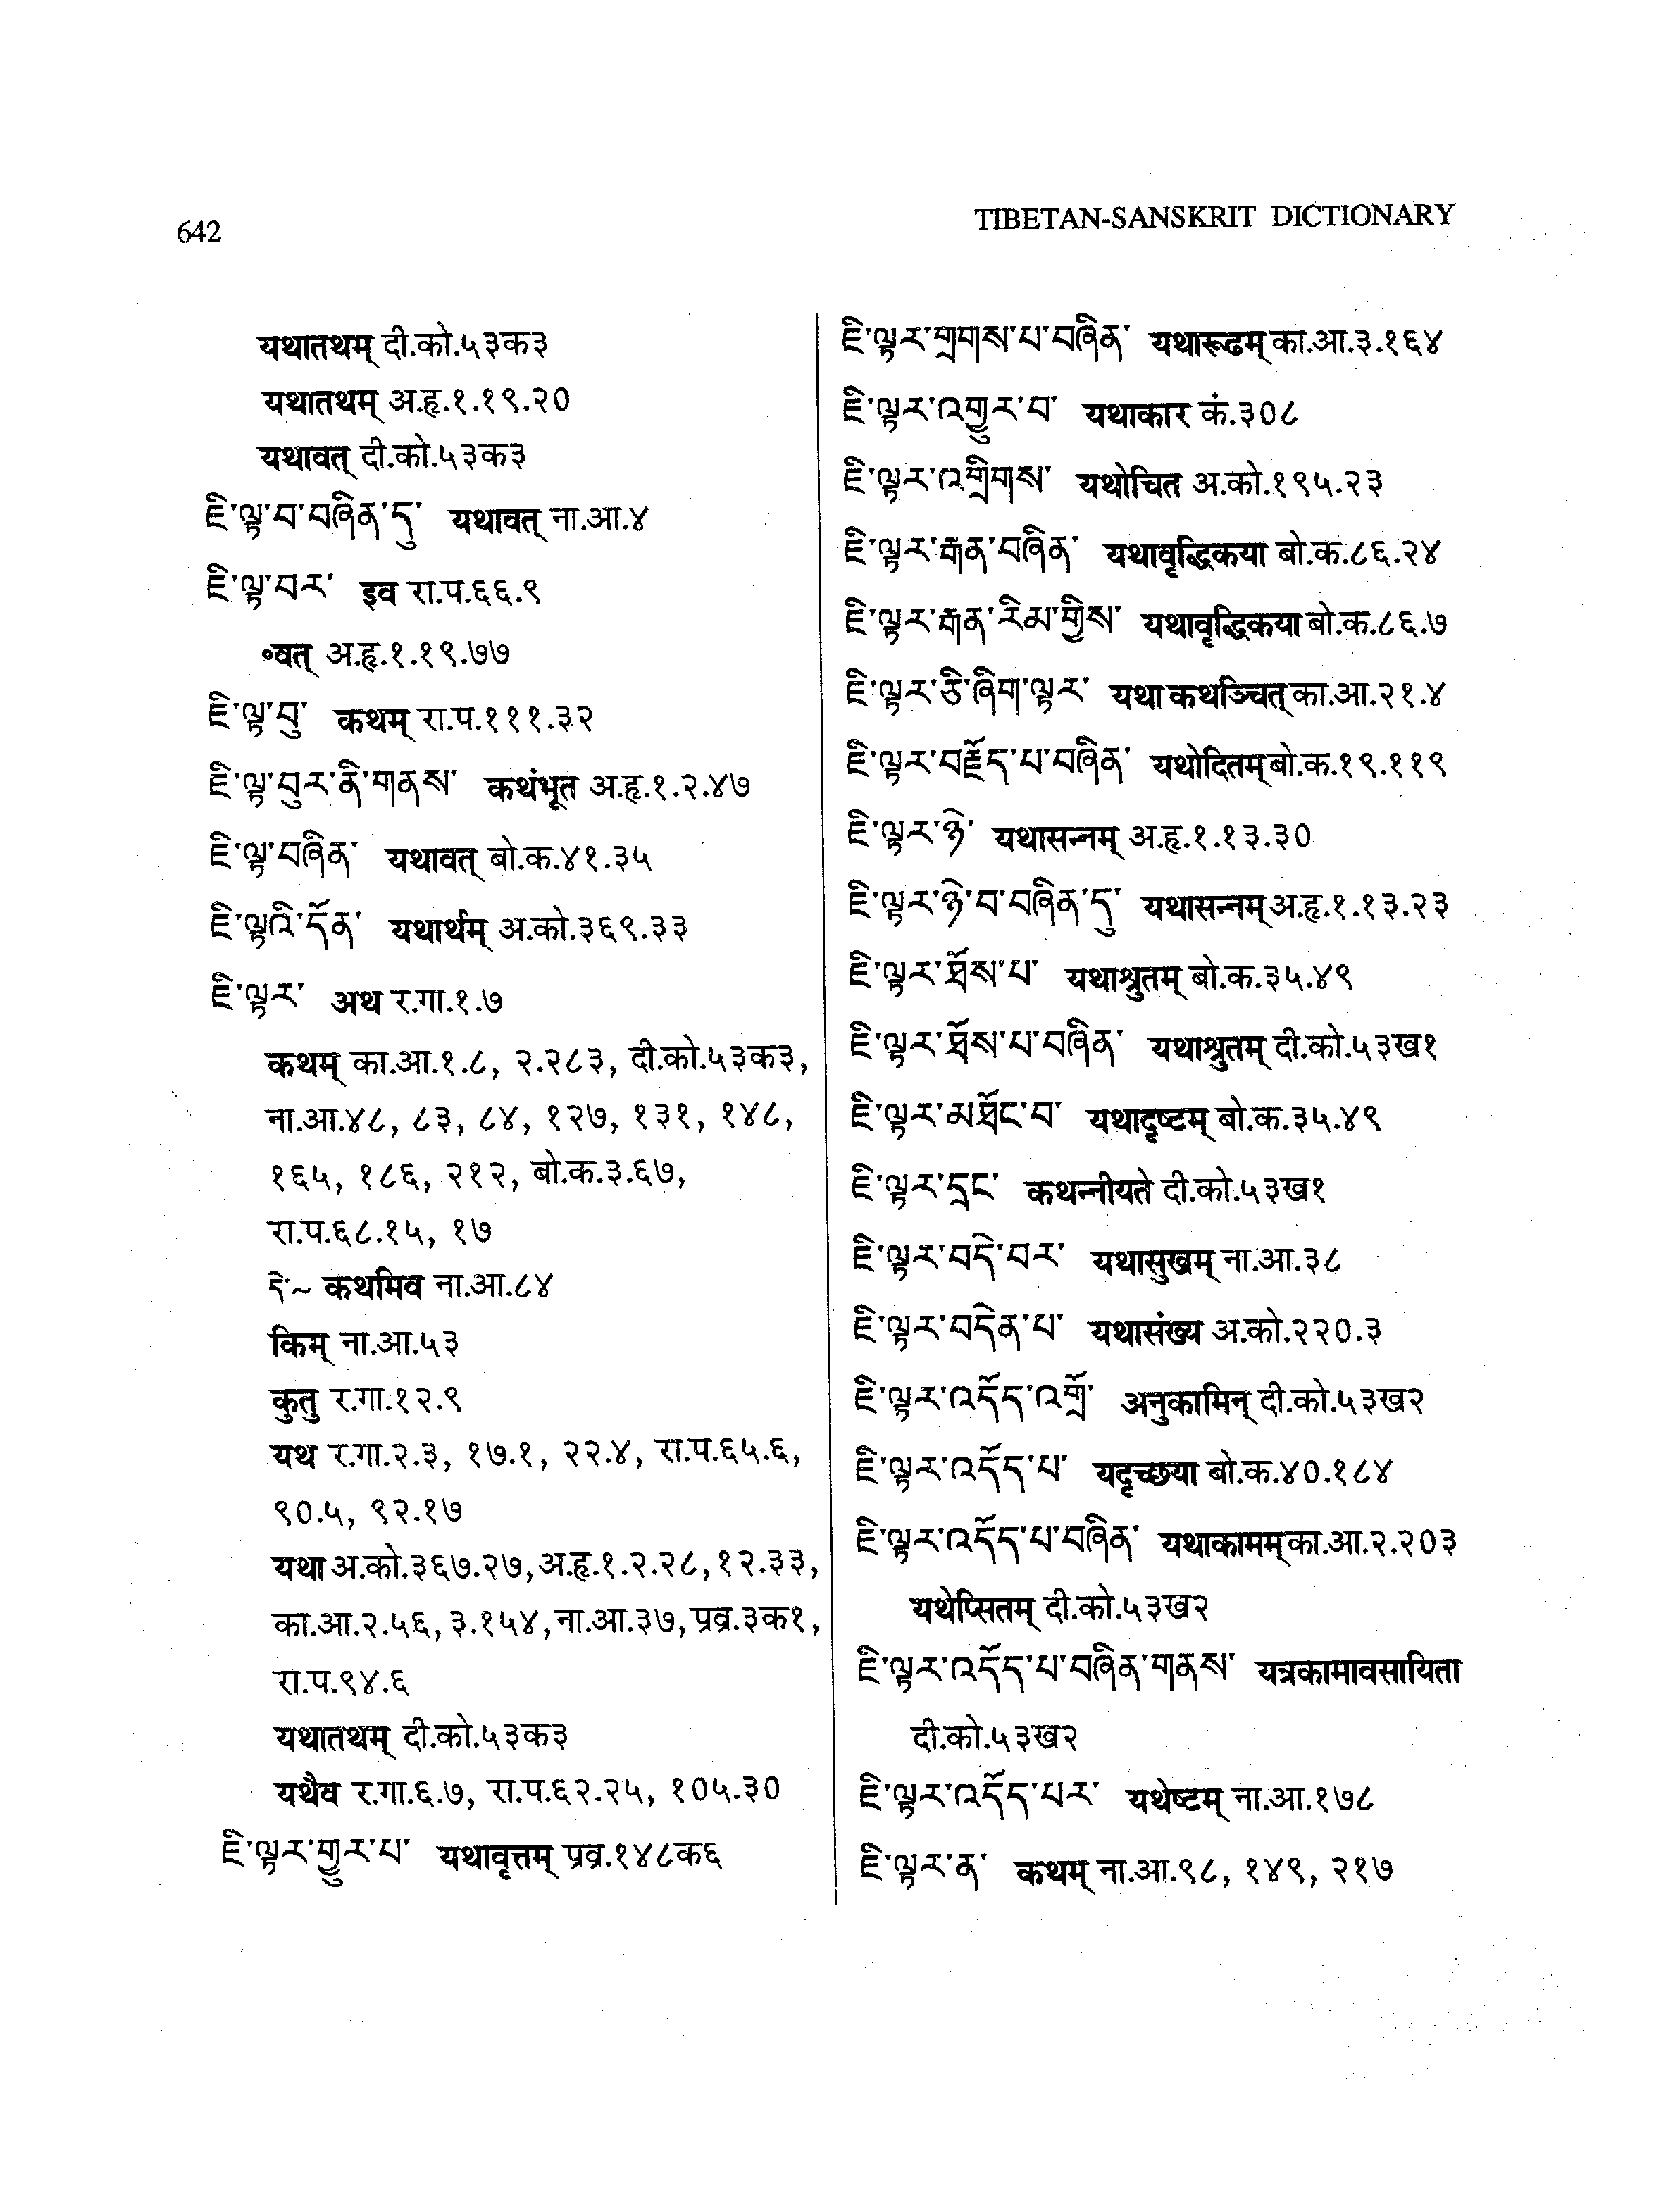 642
TIBETAN-SANSKRIT DICTIONARY
यथातथम् दी.को.५३क३
यथातथम् अ.हृ.१.१९.२०
यथावत् दी.को.५३क३
ཇི་ལྟ་བ་བཞིན་དུ་ यथावत् ना.आ.४
ཇི་ལྟ་བར་ इव रा.प.६६.९
॰वत् अ.हृ.१.१९.७७
ཇི་ལྟ་བུ་ कथम् रा.प.१११.३२
ཇི་ལྟ་བུར་ནི་གནས་ कथंभूत अ.हृ.१.२.४७
ཇི་ལྟ་བཞིན་ यथावत् बो.क.४१.३५
ཇི་ལྟའི་དོན་ यथार्थम् अ.को.३६९.३३
ཇི་ལྟར་ अथ र.गा.१.७
कथम् का.आ.१.८, २.२८३, दी.को.५३क३,
ना.आ.४८, ८३, ८४, १२७, १३१, १४८,
१६५, १८६, २१२, बो.क.३.६७,
रा.प.६८.१५, १७
དེ་~ कथमिव ना.आ.८४
किम् ना.आ.५३
कुतु र.गा.१२.९
यथ र.गा.२.३, १७.१, २२.४, रा.प.६५.६,
९०.५, ९२.१७
यथा अ.को.३६७.२७, अ.हृ.१.२.२८, १२.३३,
का.आ.२.५६, ३.१५४, ना.आ.३७, प्रव्र.३क१,
रा.प.९४.६
यथातथम् दी.को.५३क३
यथैव र.गा.६.७, रा.प.६२.२५, १०५.३०
ཇི་ལྟར་གྱུར་པ་ यथावृत्तम् प्रव्र.१४८क६
ཇི་ལྟར་གྲགས་པ་བཞིན་ यथारूढम् का.आ.३.१६४
ཇི་ལྟར་འགྱུར་བ་ यथाकार कं.३०८
ཇི་ལྟར་འགྲིགས་ यथोचित अ.को.१९५.२३
ཇི་ལྟར་རྒན་བཞིན་ यथावृद्धिकया बो.क.८६.२४
ཇི་ལྟར་རྒན་རིམ་གྱིས་ यथावृद्धिकया बो.क.८६.७
ཇི་ལྟར་ཅི་ཞིག་ལྟར་ यथा कथञ्चित् का.आ.२१.४
ཇི་ལྟར་བརྗོད་པ་བཞིན་ यथोदितम् बो.क.१९.११९
ཇི་ལྟར་ཉེ་ यथासन्नम् अ.हृ.१.१३.३०
ཇི་ལྟར་ཉེ་བ་བཞིན་དུ་ यथासन्नम् अ.हृ.१.१३.२३
ཇི་ལྟར་ཐོས་པ་ यथाश्रुतम् बो.क.३५.४९
ཇི་ལྟར་ཐོས་པ་བཞིན་ यथाश्रुतम् दी.को.५३ख१
ཇི་ལྟར་མཐོང་བ་ यथादृष्टम् बो.क.३५.४९
ཇི་ལྟར་དྲང་ कथन्नीयते दी.को.५३ख१
ཇི་ལྟར་བདེ་བར་ यथासुखम् ना.आ.३८
ཇི་ལྟར་བདེན་པ་ यथासंख्य अ.को.२२०.३
ཇི་ལྟར་འདོད་འགྲོ་ अनुकामिन् दी.को.५३ख२
ཇི་ལྟར་འདོད་པ་ यदृच्छया बो.क.४०.१८४
ཇི་ལྟར་འདོད་པ་བཞིན་ यथाकामम् का.आ.२.२०३
यथेप्सितम् दी.को.५३ख२
ཇི་ལྟར་འདོད་པ་བཞིན་གནས་ यत्रकामावसायिता
दी.को.५३ख२
ཇི་ལྟར་འདོད་པར་ यथेष्टम् ना.आ.१७८
ཇི་ལྟར་ན་ कथम् ना.आ.९८, १४९, २१७